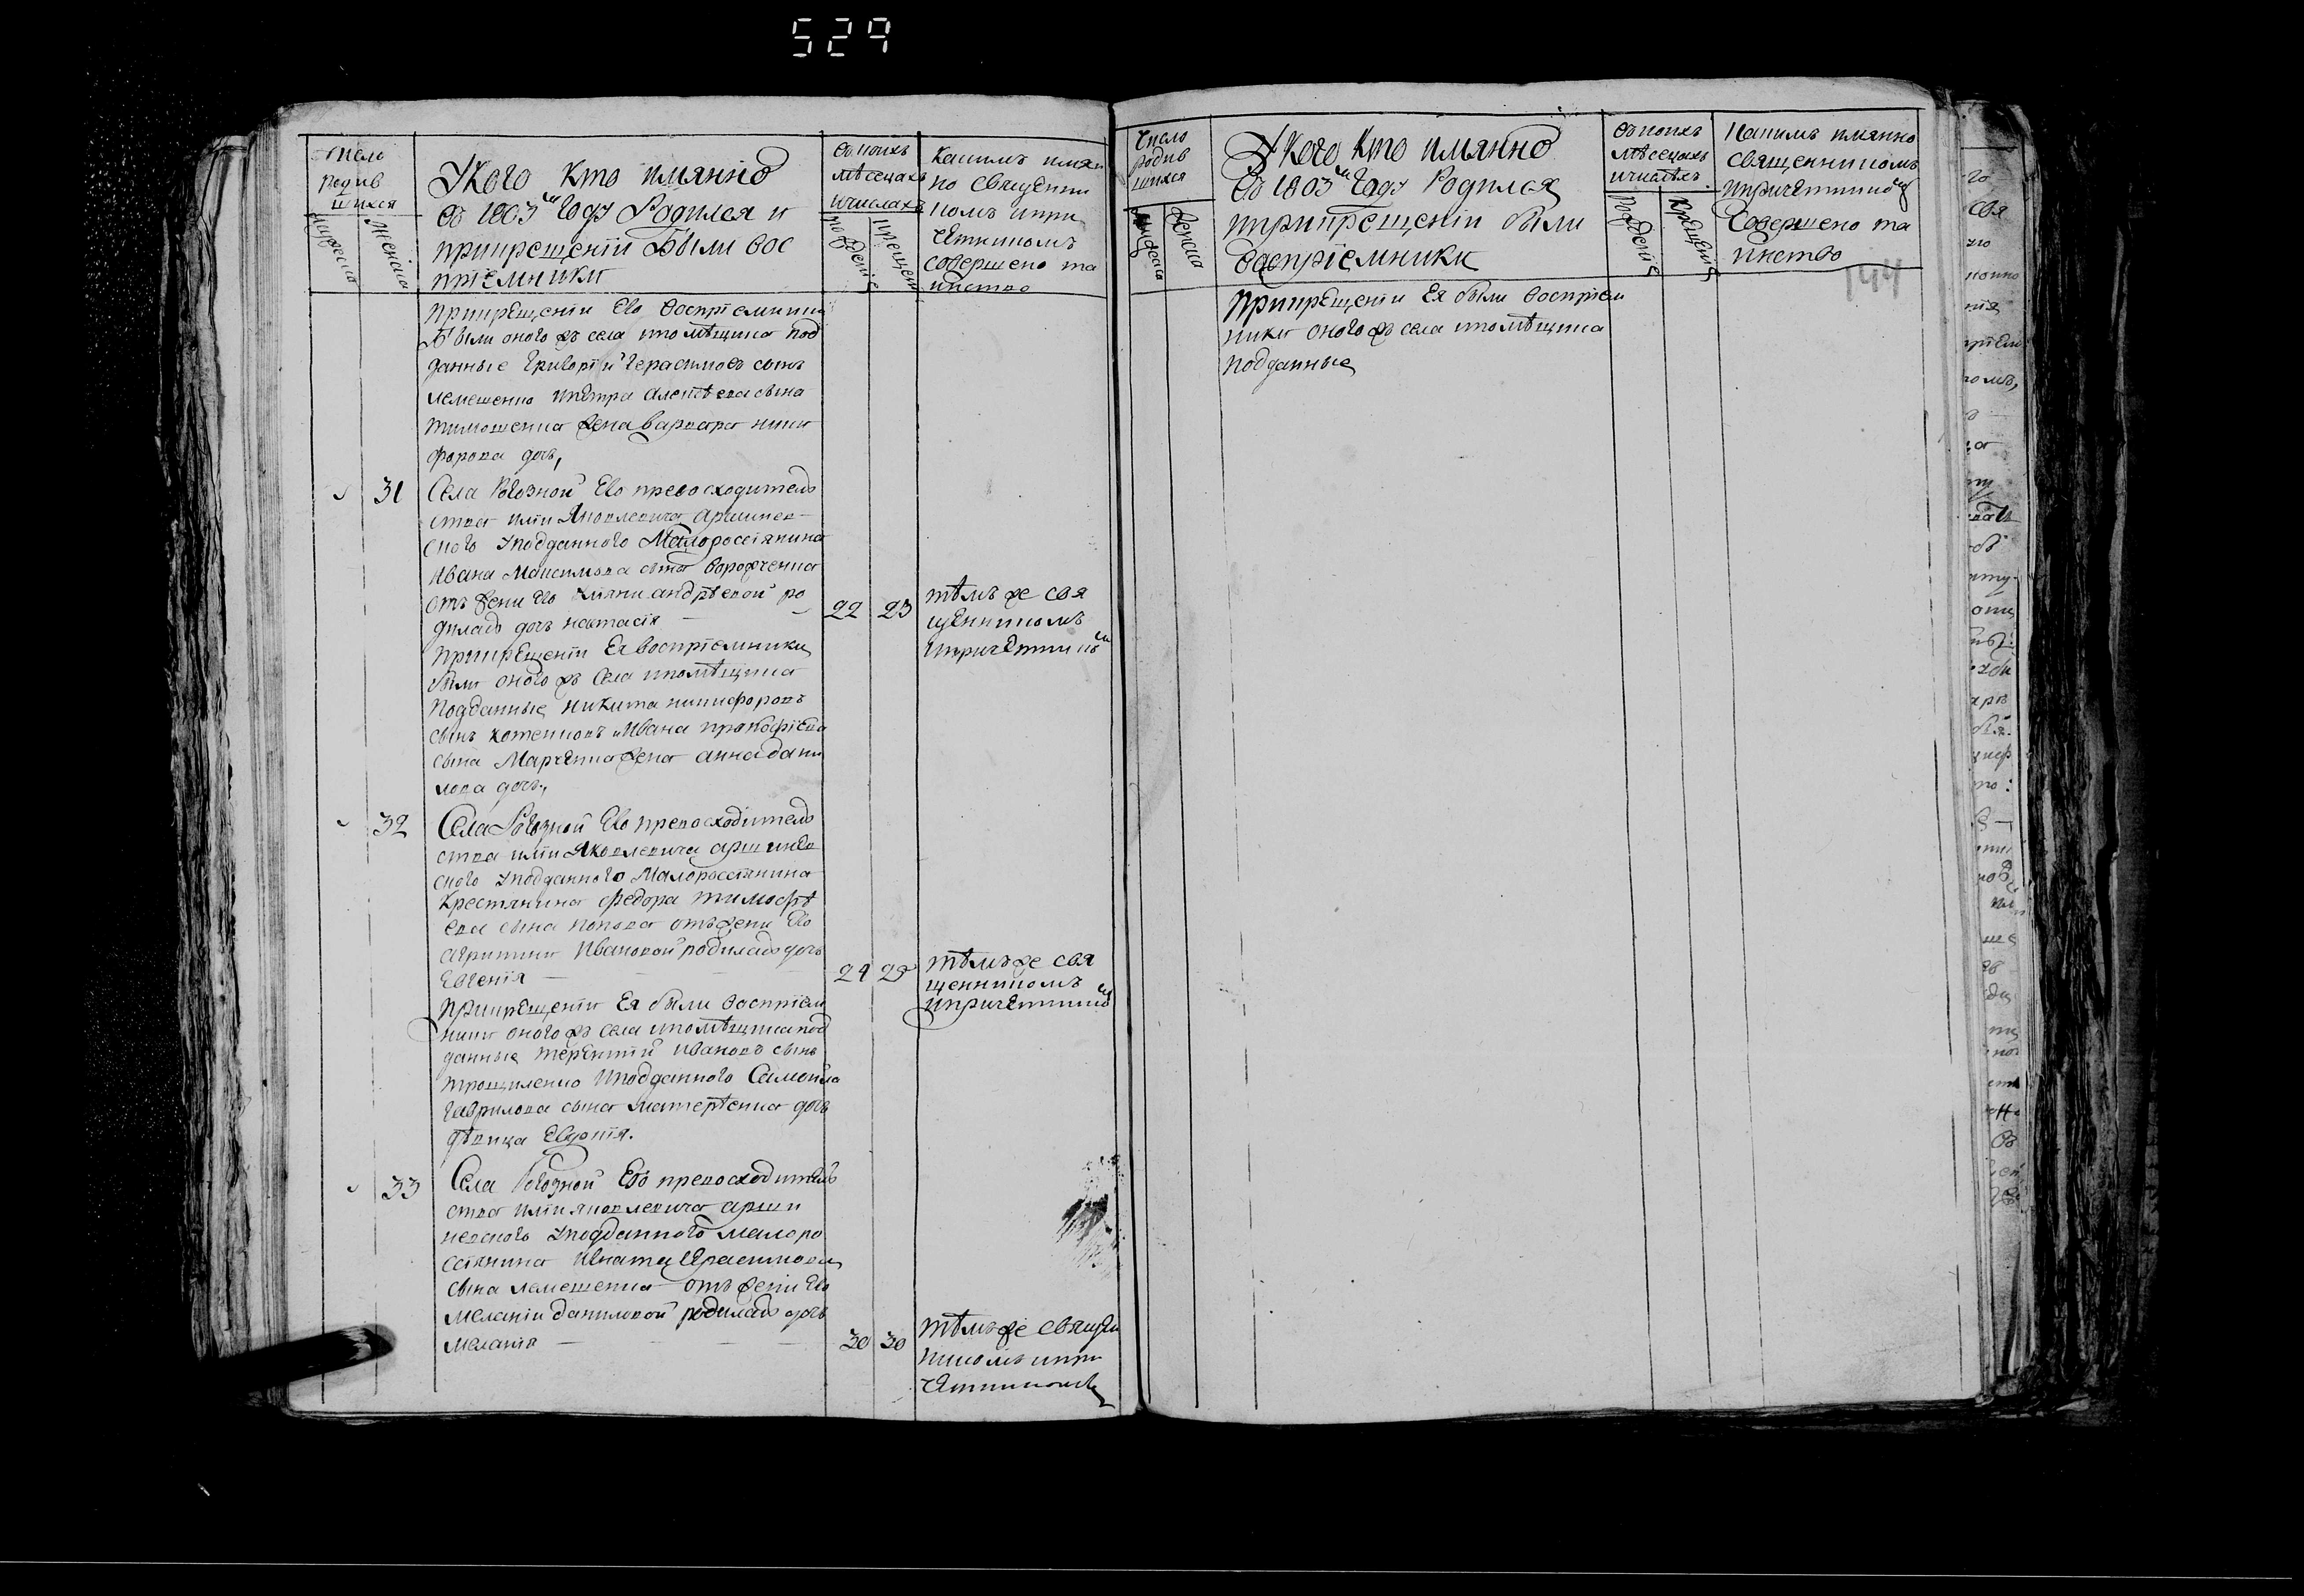 529
Число
родив
шихся
мужеска
женска
У кого кто имянно
въ 1803м году родился и
прикрещенiи были вос
прiемники
въ коихъ
мѣсецахъ
ичислахъ
крещен
какимъ имян
но священи
комъ ипри
четникомъ
совершено та
инство
прикрещенiи Его воспрiемники
были оного жъ села ипомѣщика под
данные Григорiй Герасимовъ сынъ
лемешенко ипетра алексѣева сына
тимошенка жена варвара ники
форова дочь,
31
Села Рогозной Его превосходителъ
ства илiи Яковлевича аршинев
ского уподданного Малороссiянина
Ивана Максимова сына
отъ жени Его андрѣевой ро
диласъ дочь настасiя
22 23
тѣмъ же свя
щенникомъ
ипричетником
прикрещенiи Ея воспрiемники
были оного жъ села ипомѣщика
подданные никита никифоровъ
сынъ котенковъ иИвана прокофiева
сына Марченка жена анна дани
лова дочь,
32
Села Рогозной Его превосходителъ
ства илiи Яковлевича аршинев
ского уподданного Малороссiянина
Крестянина федора тимофѣ
ева сына попова отъ жени Его
агрипини Ивановой родиласъ дочь
Евгенiя
24 25
тѣмъ же свя
щенникомъ
ипричетником
прикрещенiи Ея были воспрiем
ники оного жъ села ипомѣщика под
данные терентiй Ивановъ сынъ
трощиленко иподданного Самойла
гаврилова сына матерѣенка дочь
дѣвица Евдокiя.
33
Села Рогозной Его превосходителъ
ства илiи яковлевича арши
невского уподданного малоро
сiянина Игната Герасимова
сына лемешенка отъ жени Его
меланiи даниловой родиласъ дочь
меланiя
30 30
тѣмъ же священ
никомъ ипри
четникомъ
Число
родив
шихся
женска
У кого кто имянно
въ 1803м году родился
иприкрещенiи были
воспрiемники
въ коихъ
мѣсецахъ
ичислѣхъ
рождение
крещение
какимъ имянно
священникомъ
ипричетником
совершено та
инство
144
прикрещенiи Ея были воспрiем
ники оного жъ села ипомѣщика
подданные